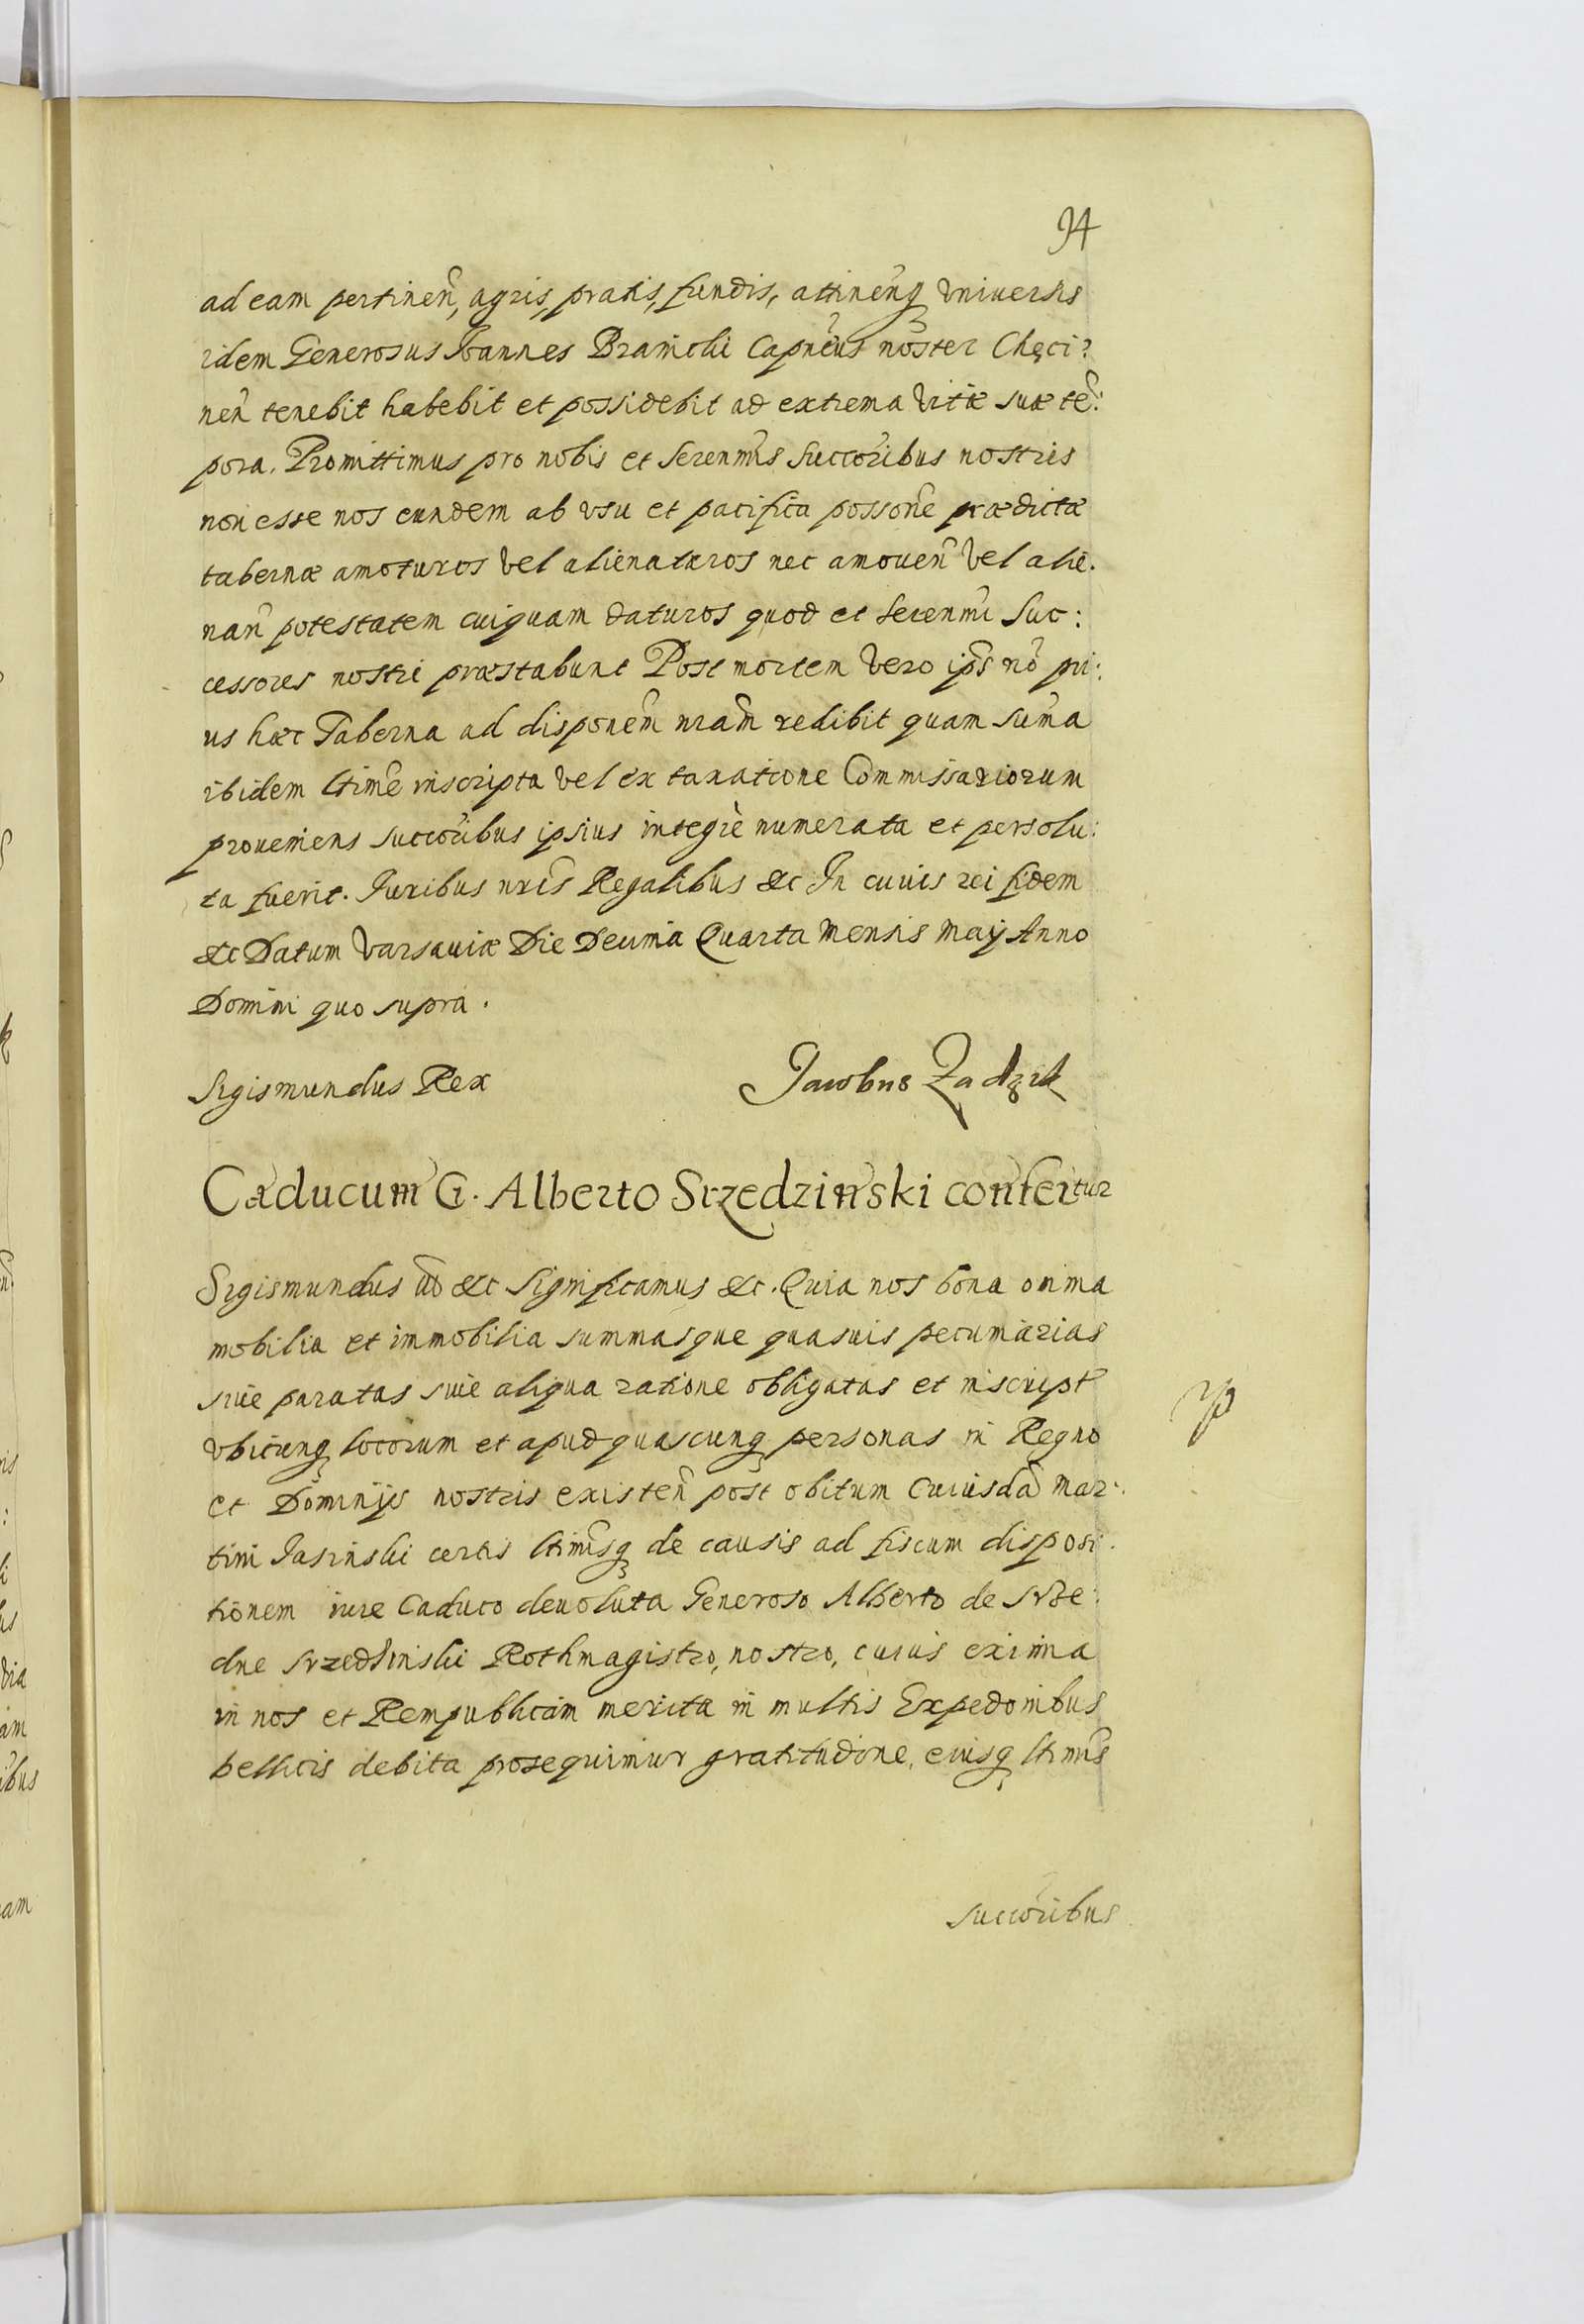 94
ad eam pertineñ, agris, pratis, fundis, attineñq vniuersis
idem Generosus Joannes Branicki Capneus noster Chęci:
neñ tenebit habebit et possidebit ad extrema vitæ suæ tẽ:
pora. Promittimus pro nobis et Serenmis Succoribus nostris
non esse nos eundem ab vsu et pacifica possone prædictæ
tabernæ amoturos vel alienaturos nec amoueñ vel alie.
nañ potestatem cuiquam daturos quod et Serenmi Suc:
cessores nostri præstabunt Post mortem vero ips nõ pri:
us hæc Taberna ad disponem nram redibit quam suma
ibidem ltime inscripta vel ex taxatione Commissariorum
proueniens succoribus ipsius integrè numerata et persolu:
ta fuerit. Juribus nris Regalibus &c In cuius rei fidem
&c Datum Varsauiæ Die Decima Quarta Mensis Maij Anno
Domini quo supra.
Sigismundus Rex Jacobus Zadzik
Caducum G. Alberto Srzedzinski confertur
Sigismundus &c Significamus &c. Quia nos bona omnia
mobilia et immobilia summasque quasuis pecuniarias
siue paratas siue aliqua ratione obligatas et inscript
vbicunq locorum et apud quascunq personas in Regno
et Dominijs nostris existeñ post obitum cuiusdã Mar:
tini Jasinski certis ltimisq de causis ad fiscum disposi:
tionem iure Caduco deuoluta Generoso Alberto de Srze:
dne Srzedzinski Rothmagistro, nostro, cuius eximia
in nos et Rempublicam merita in multis Expedonibus
bellicis debita prosequimur gratitudine, eiusq ltimis
succoribus